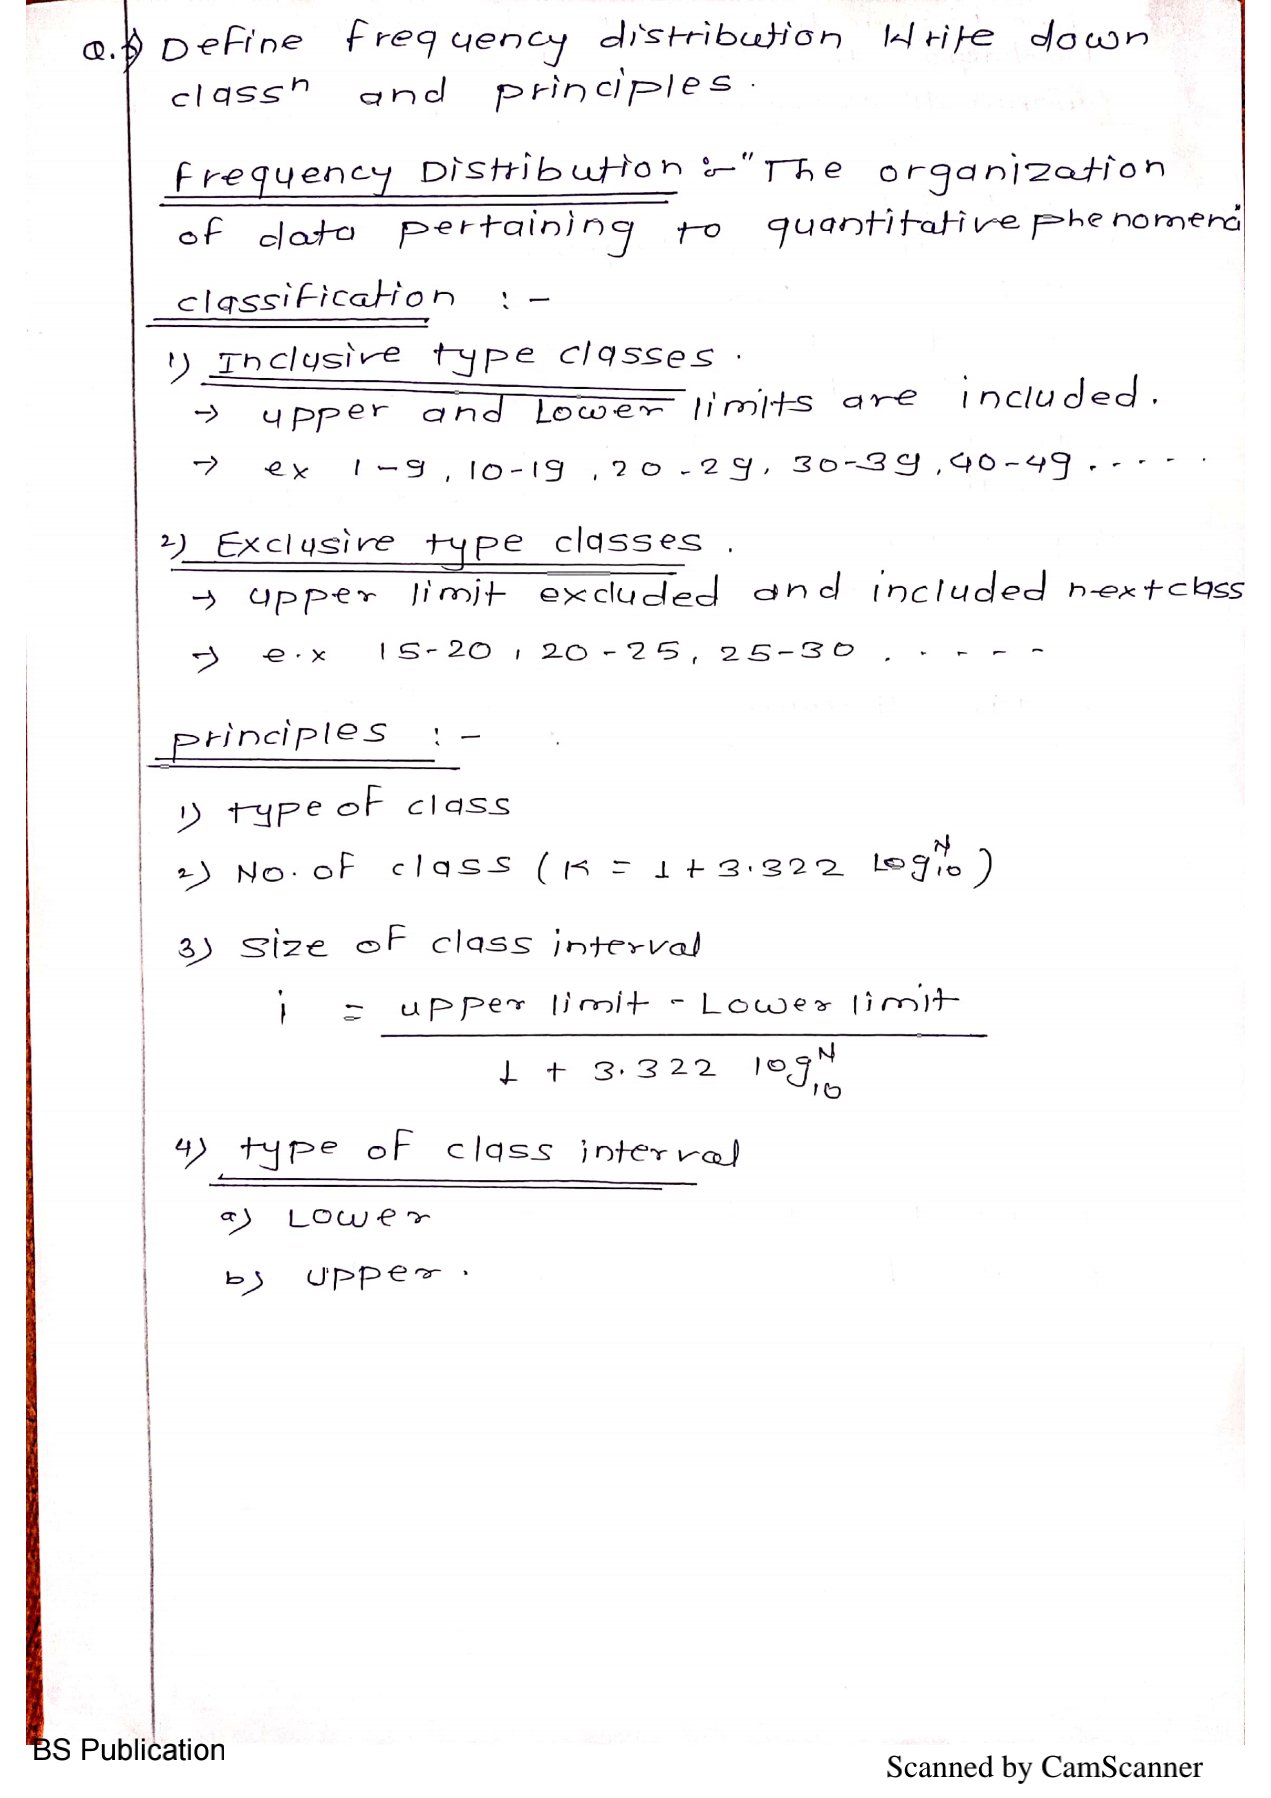 Q.5) Define frequency distribution Write down
classⁿ and principles.
Frequency Distribution :- "The organization
of data pertaining to quantitative phenomena
classification :-
1) Inclusive type classes.
→ upper and Lower limits are included.
→ ex 1-9, 10-19, 20-29, 30-39, 40-49.....
2) Exclusive type classes.
→ upper limit excluded and included next class
→ e.x 15-20, 20-25, 25-30 . . - - -
principles :-
1) type of class
2) No. of class (K = 1 + 3.322 Log₁₀ᴺ)
3) size of class interval
i = upper limit - Lower limit
1 + 3.322 log₁₀ᴺ
4) type of class interval
a) Lower
b) Upper.
BS Publication
Scanned by CamScanner